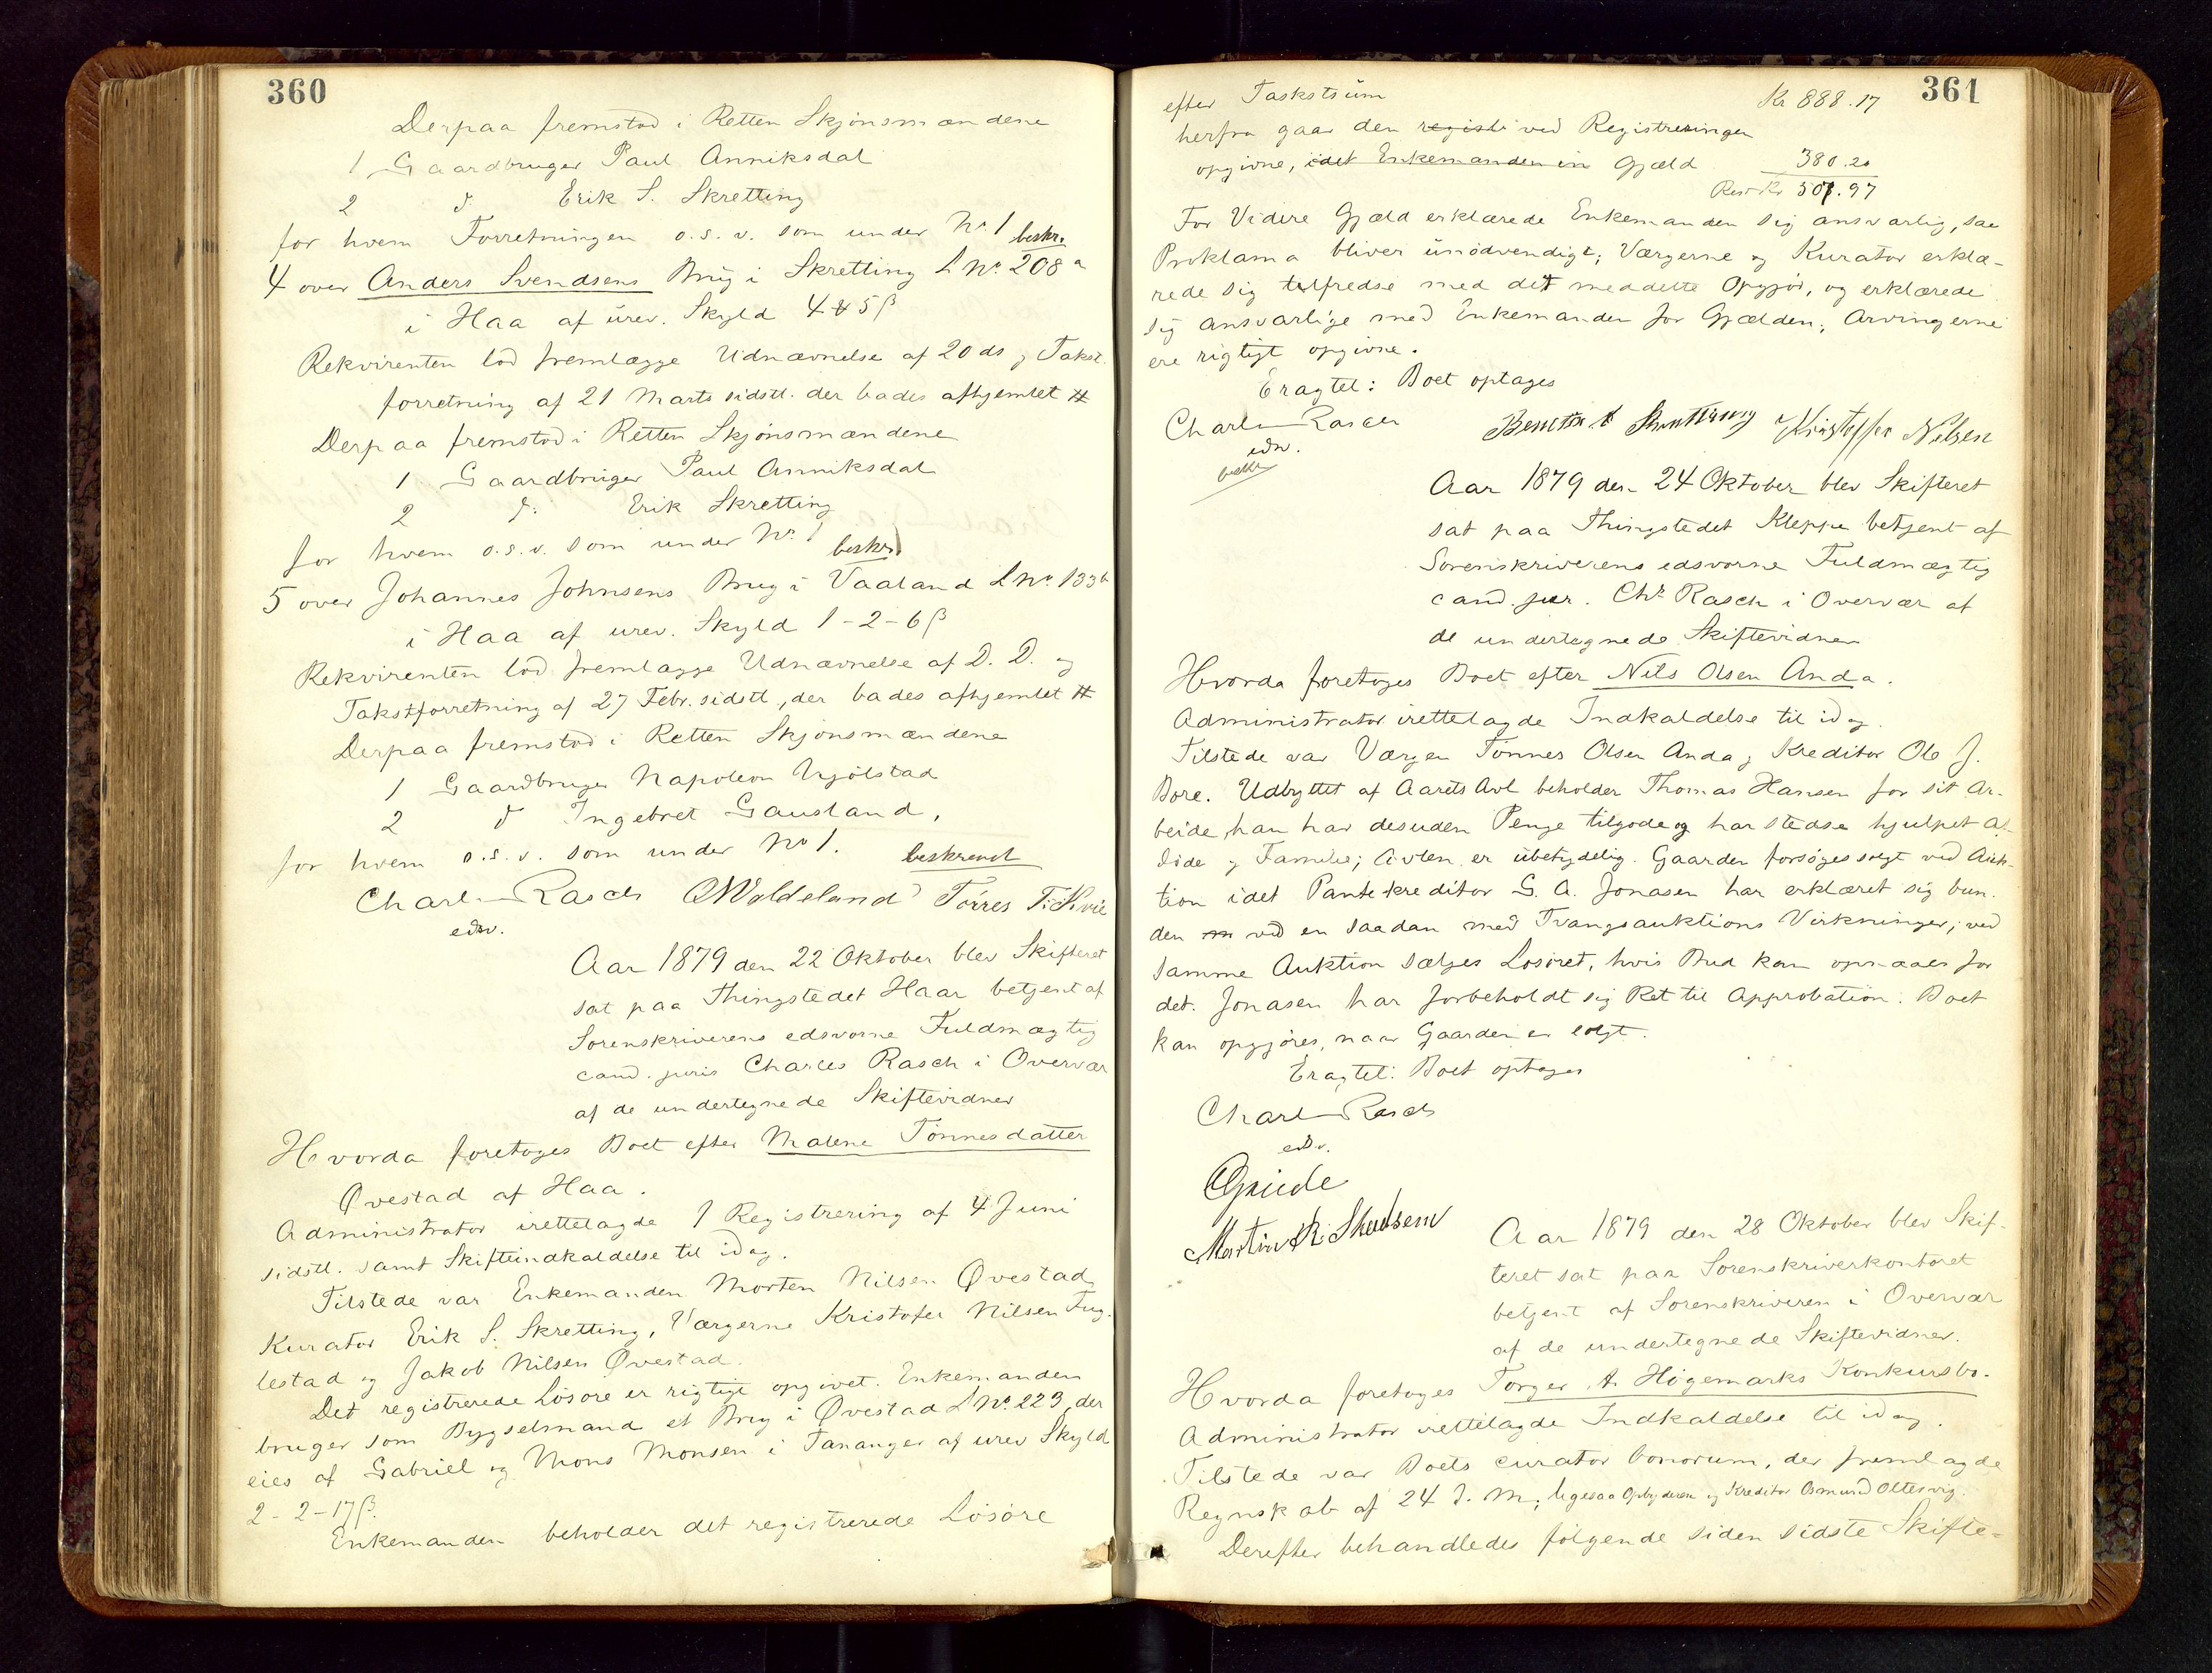 360
Derpaa fremstod i Retten Skjønsmændene
1 Gaardbruger Paul Anniksdal
2 d. Erik S. Skretting
for hvem Forretningen o.s.v. som under No 1 beskr.
4 over Anders Svendsens Brug i Skretting L No. 208 a
i Haa af urev. Skyld 4 ₰ 5 β
Rekvirenten lod fremlægge Udnævnelse af 20 ds og Takst
forretning af 21 Marts sidstl. der bades afhjemlet #
Derpaa fremstod i Retten Skjønsmændene
1 Gaardbruger Paul Anniksdal
2 d. Erik Skretting
for hvem o.s.v. som under No. 1 beskr.
5 over Johannes Johnsens Brug i Vaaland L No. 133 b
i Haa af urev. Skyld 1-2-6 β
Rekvirenten lod fremlægge Udnævnelse af D. D. og
Takstforretning af 27 Febr. sidstl, der bades afhjemlet #
Derpaa fremstod i Retten Skjønsmændene
1 Gaardbruger Napoleon Njølstad
2 d Ingebret Gausland,
for hvem o.s.v. som under No 1. beskrevet
Charles Rasch OWoldeland Tørres T. Kvie
edsv.
Aar 1879 den 22 Oktober blev Skifteret
sat paa Thingstedet Haar betjent af
Sorenskriverens edsvorne Fuldmægtig
cand. juris Charles Rasch i Overvær
af de undertegnede Skiftevidner
Hvorda foretoges Boet efter Malene Tønnesdatter
Øvestad af Haa.
Administrator irettelagde 1 Registrering af 4 Juni
sidstl. samt Skifteindkaldelse til idag.
Tilstede var Enkemanden Morten Nilsen Øvestad,
Kurator Erik S. Skretting, Værgerne Kristofer Nilsen Fug-
lestad og Jakob Nilsen Øvestad.
Det registrerede Løsøre er rigtigt opgivet. Enkemanden
bruger som Bygselmand et Brug i Øvestad L No. 223, der
eies af Gabriel og Mons Monsen i Tananger af urev Skyld
2-2-17 β.
Enkemanden beholder det registrerede Løsøre
361
efter Taskstsum Kr 888.17
herfra gaar den registr ved Registreringen
opgivne, idet Enkemanden in Gjæld 380.20
Rest Kr 507.97
For Videre Gjæld erklærede Enkemanden sig ansvarlig, saa
Proklama bliver unødvendigt; Værgerne og Kurator erklæ-
rede sig tilfredse med det meddelte Opgjør, og erklærede
sig ansvarlige med Enkemanden for Gjælden; Arvingerne
ere rigtigt opgivne.
Eragtet: Boet optages
Charles Rasch Kristoffer Nilsen
edsv.
Aar 1879 den 24 Oktober blev Skifteret
sat paa Thingstedet Kleppe betjent af
Sorenskriverens edsvorne Fuldmægtig
cand. jur. Chs Rasch i Overvær af
de undertegnede Skiftevidner
Hvorda foretoges Boet efter Nils Olsen Anda.
Administrator irettelagde Indkaldelse til idag.
Tilstede var Værgen Tønnes Olsen Anda, Kreditor Ole J.
Bore. Udbyttet af Aarets Avl beholder Thomas Hansen for sit Ar-
beide, han har desuden Penge tilgode og har stedse hjulpet Af-
døde og Familie; Avlen er ubetydelig. Gaarden forsøges solgt ved Auk-
tion idet Pantekreditor G. A. Jonasen har erklæret sig bun-
den m ved en saadan med Tvangsauktions Virkninger; ved
samme Auktion sælges Løsøret, hvis Bud kan opnaaes for
det. Jonasen har forbeholdt sig Ret til Approbation. Boet
kan opgjøres, naar Gaarden er solgt.
Eragtet: Boet optages
Charles Rasch
edsv.
OGrude
Martin R. Skadsem
Aar 1879 den 28 Oktober blev Skif-
teret sat paa Sorenskriverkontoret
betjent af Sorenskriveren i Overvær
af de undertegnede Skiftevidner.
Hvorda foretoges Torger A. Høgemarks Konkursbo.
Administrator irettelagde Indkaldelse til idag.
Tilstede var Boets curator bonorum, der fremlagde
Regnskab af 24 d. M; ligesaa Opbyderen og Kreditor Asmund Oltesvig.
Derefter behandledes følgende siden sidste Skifte-